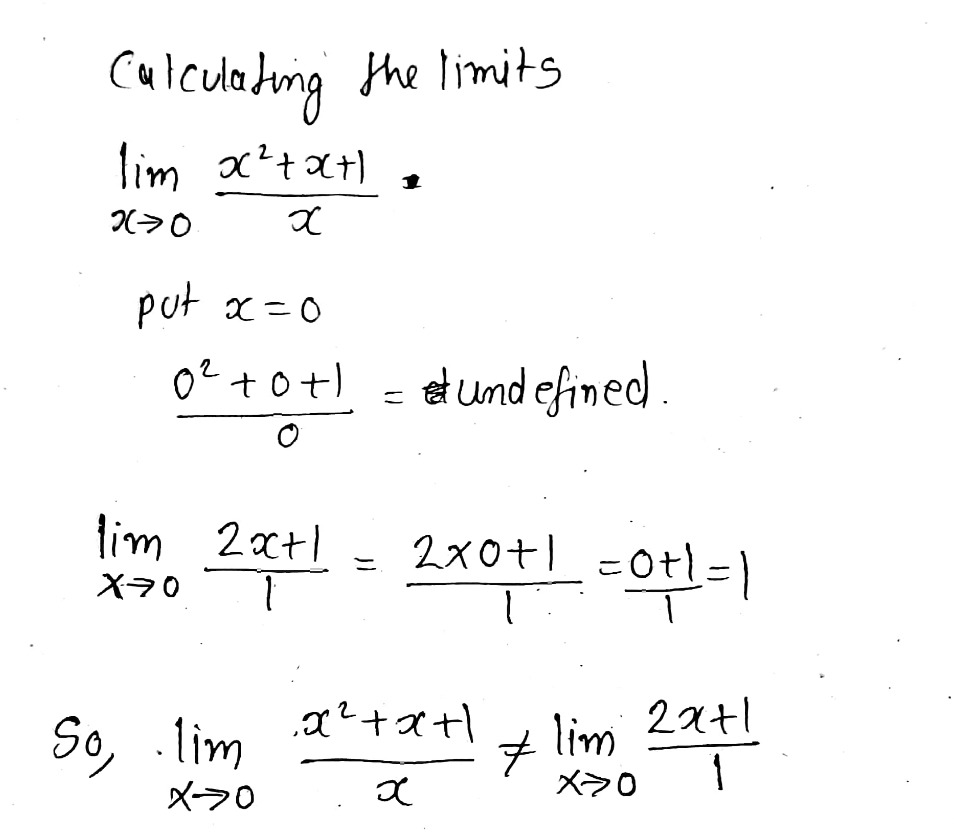 Calculating the limits
lim x→0 (x²+x+1)/x .
put x=0
(0²+0+1)/0 = undefined.
lim x→0 (2x+1)/1 = (2×0+1)/1 = (0+1)/1 = 1
So, lim x→0 (x²+x+1)/x ≠ lim x→0 (2x+1)/1